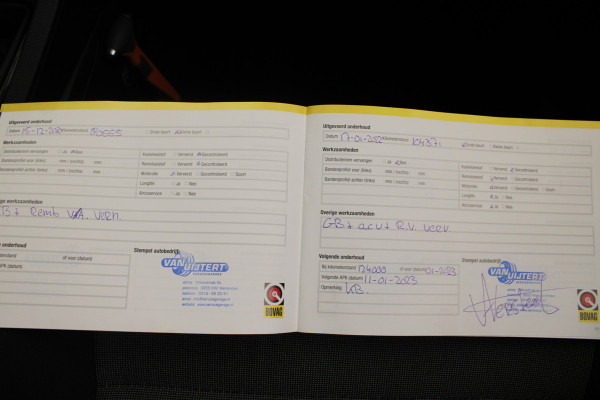 Uitgevoerd onderhoud
Datum 15-12-20 Kilometerstand
Werkzaamheden
Distributieriem vervangen Ja Nee
Bandenprofiel voor (links) mm (rechts) mm
Bandenprofiel achter (links) mm (rechts) mm
Koelvloeistof Ververst Gecontroleerd
Remvloeistof Ververst Gecontroleerd
Motorolie Ververst Gecontroleerd Soort
Longlife Ja Nee
Kinservice Ja Nee
werkzaamheden
GB + Remb V.A. Vern.
onderhoud
of voor (datum)
APK (datum)
Stempel autobedrijf
VAN UIJTERT
BOVAG
Uitgevoerd onderhoud
Datum 17-01-2022 Kilometerstand 104371
Grote beurt Kleine beurt
Werkzaamheden
Distributieriem vervangen Ja Nee
Bandenprofiel voor (links) mm (rechts) mm
Bandenprofiel achter (links) mm (rechts) mm
Koelvloeistof Ververst Gecontroleerd
Remvloeistof Ververst Gecontroleerd
Motorolie Ververst Gecontroleerd Soort
Longlife Ja Nee
Ja Nee
Overige werkzaamheden
GB + accu + R.V. verv.
Volgende onderhoud
Bij kilometerstand 124000 of voor (datum) 01-2023
Volgende APK (datum) 11-01-2023
Opmerking KB
Stempel autobedrijf
VAN UIJTERT
BOVAG